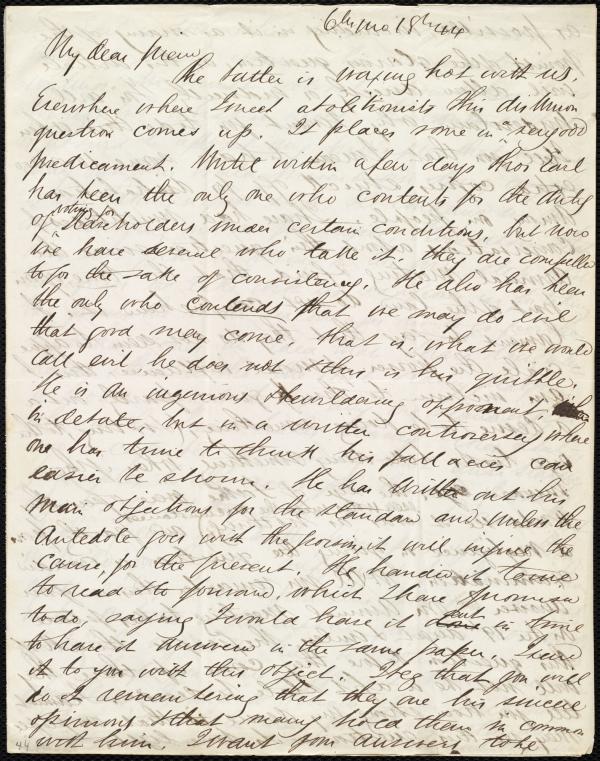 6th mo 18th 44
My dear friend
The battle is waxing hot with us.
Everwhere where I meet abolitionists this disunion
question comes up. It places some in a very odd
predicament. Until within a few days Thos Earl
has been the only one who contents for the duty
of voting for slaveholders under certain conditions, but now
we have several who take it. they are compelled
to for the sake of consistency. He also has been
the only who contends that we may do evil
that good may come, that is, what we would
call evil he does not & this is his quibble.
He is an ingenious & bewildering opponent,
in debate, but in a written controversy where
one has time to think his fallacies can
easier be shown. He has written out his
main objections for the Standard and unless the
Antedote goes with the poison, it will injure the
cause, for the present. He handed it to me
to read & to forward, which I have promised
to do, saying I would have it sent in time
to have it answered in the same paper. I send
it to you with this object. I beg that you will
do it remembering that they are his sincere
opinions & that many hold them in common
with him. I want your answers to be
44